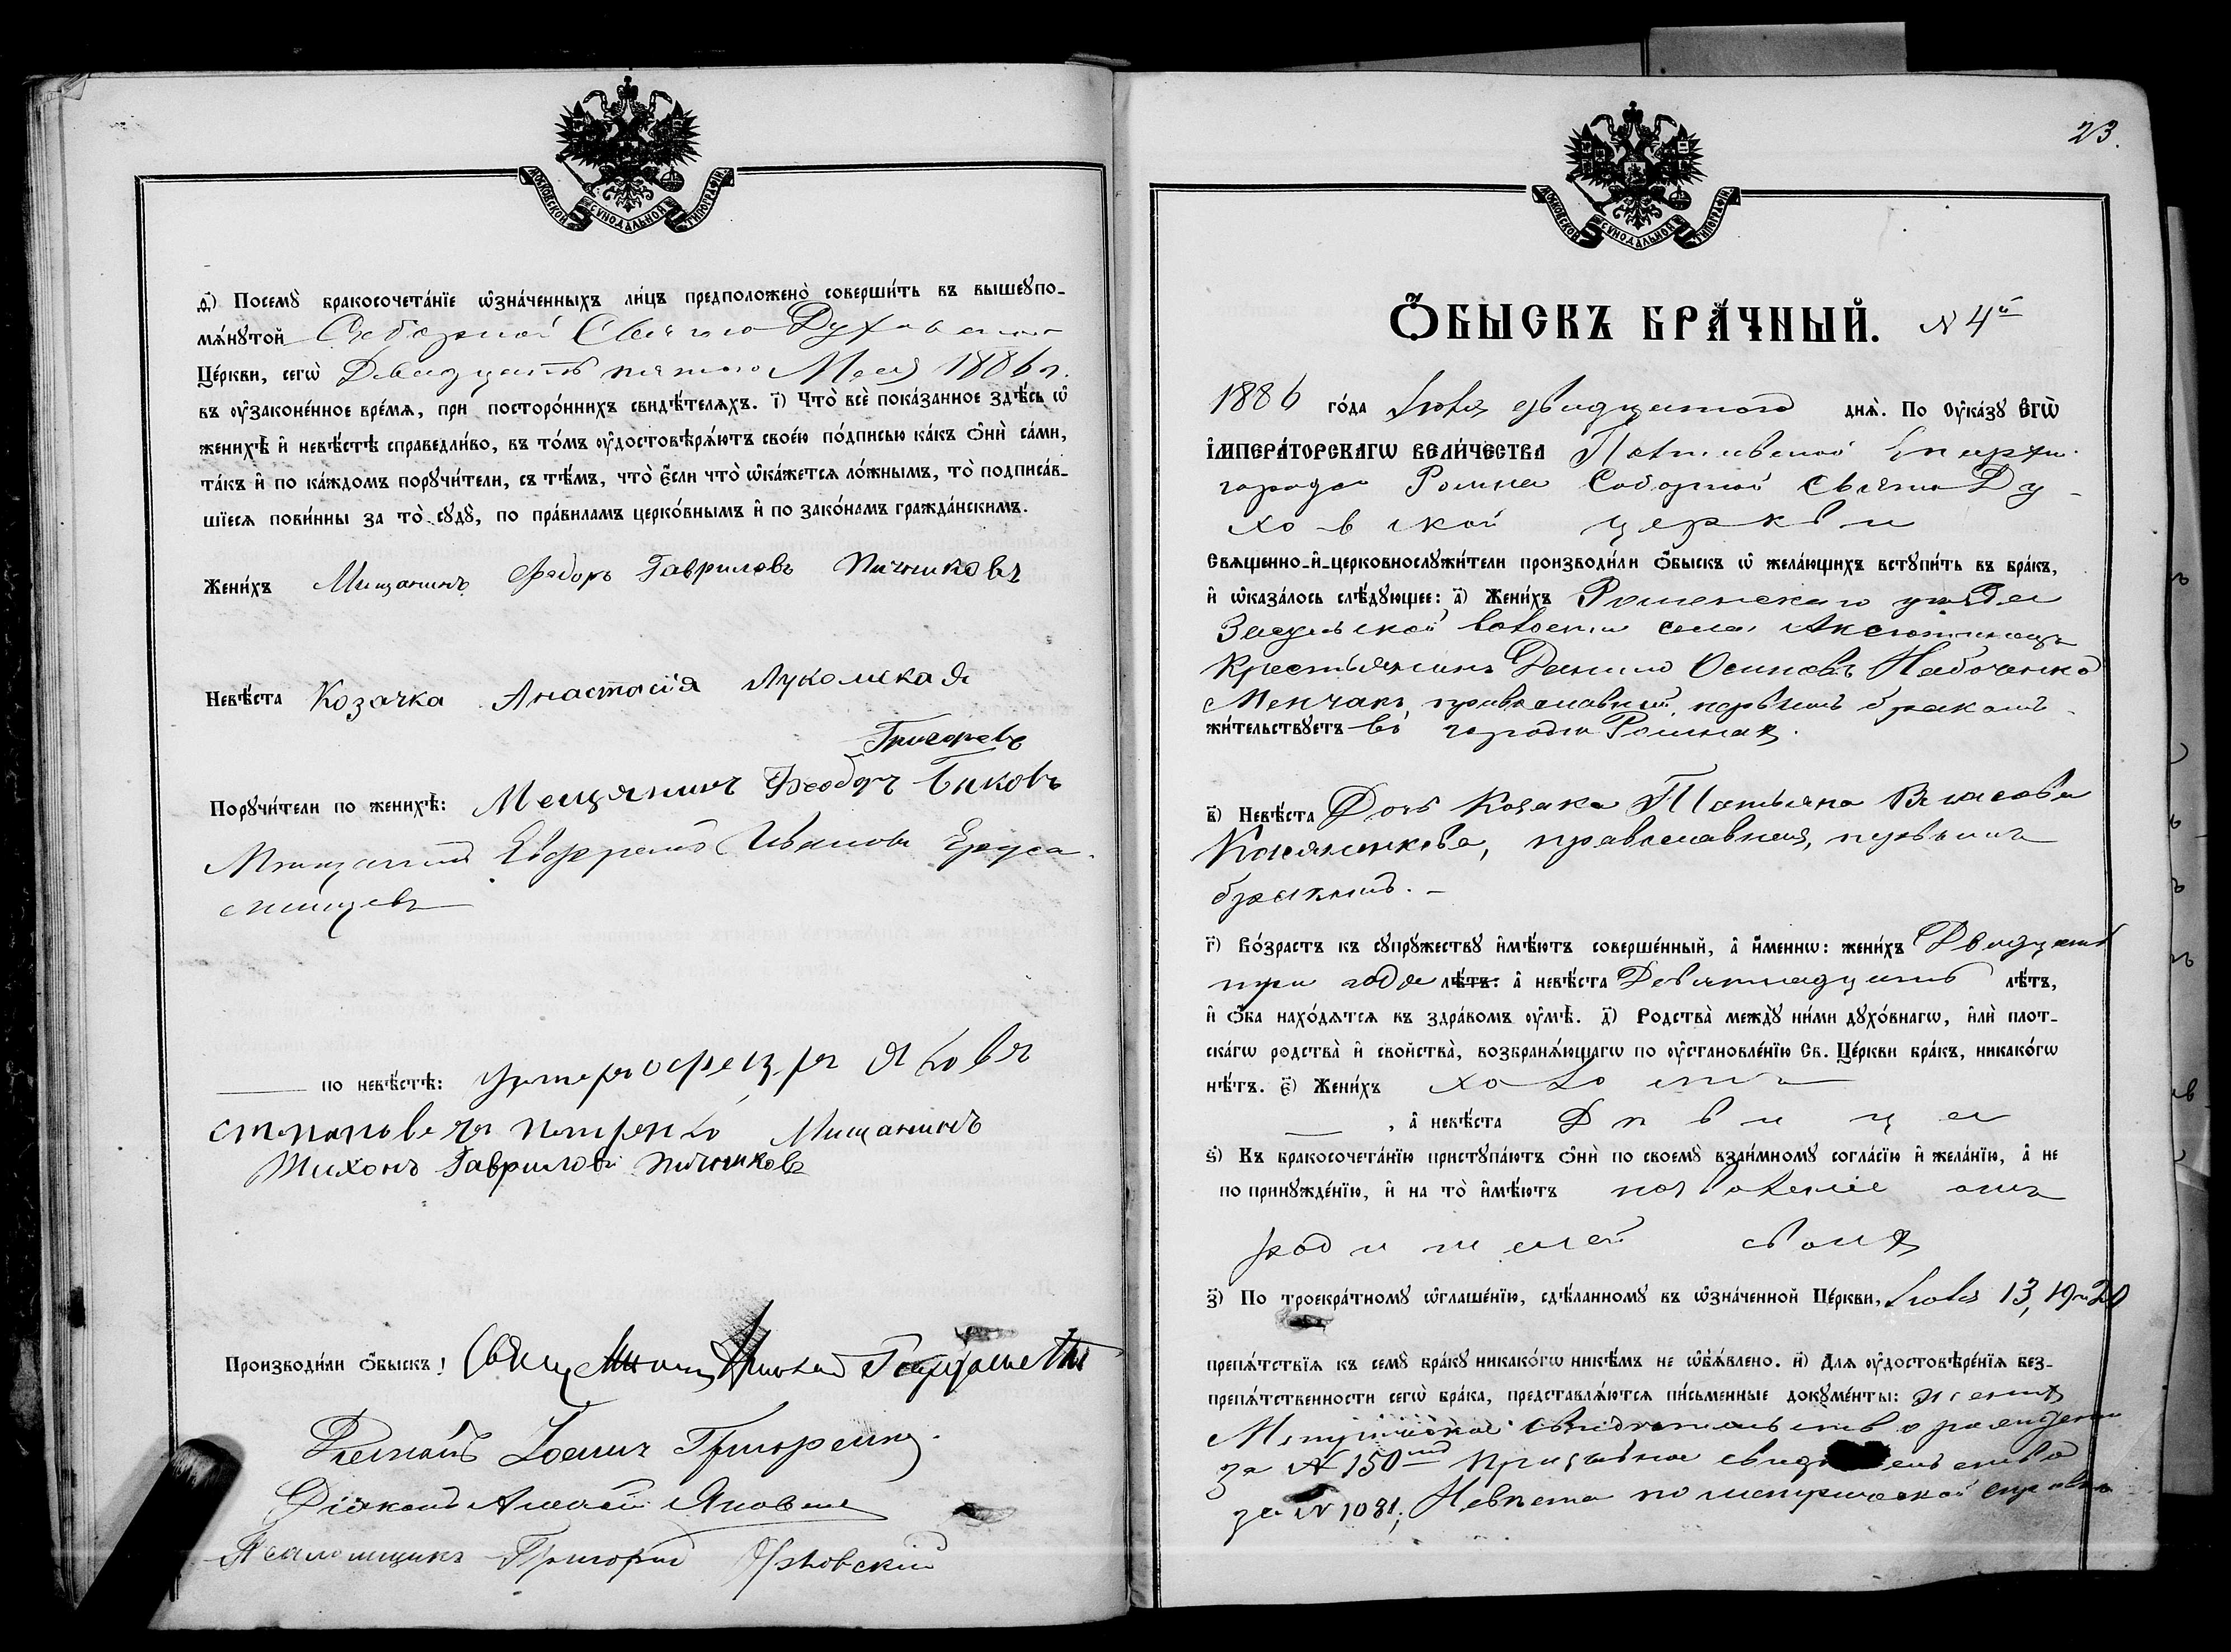 д҃) Посемꙋ̀ бракосочета́нїе ѡ҆зна́ченныхъ ли́цъ предположено̀ соверши́ть въ вышеꙋпо-
мѧ́нꙋтой Соборной Свято Духовской
Це́ркви, сегѡ̀ Двадцать пятого Мая 1886 г.
въ ᲂу҆законе́нное вре́мѧ, при посторо́ннихъ свидѣ́телѧхъ. і҃) Что̀ всѐ пока́занное здѣ́сь ѡ҆
женихѣ̀ и҆ невѣ́стѣ справедли́во, въ то́мъ ᲂу҆достовѣрѧ́ютъ свое́ю по́дписью ка́къ ѻ҆нѝ са́ми,
та́къ и҆ по ка́ждомъ порꙋчи́тели, съ тѣ́мъ, что̀ є҆́сли что̀ ѡ҆ка́жетсѧ ло́жнымъ, то̀ подписа́в-
шїесѧ пови́нны за то̀ сꙋдꙋ̀, по пра́виламъ церко́внымъ и҆ по зако́намъ гражда́нскимъ.
Жени́хъ Мищанинъ Федоръ Гавриловъ Пичниковъ
Невѣ́ста Козачка Анастасія Лукомская
Григорьевъ
Порꙋчи́тели по женихѣ̀: Мещянинъ Феодоръ Биковъ
Мищанинъ Ивановъ
по невѣ́стѣ: Унтеръ офецеръ Яковъ
Мищанинъ
Тихонъ Гавриловъ Пичниковъ
Производи́ли ѻ҆́быскъ: Свящ Николай
Діаконъ Іоаннъ Григоренко
Діаконъ Алексѣй Яновскій
Псаломщикъ Григорій
23.
Ѻ҆́БЫСКЪ БРА́ЧНЫЙ. N 4й
1886 го́да Іюля двадцатого днѧ̀. По Оу҆ка́зꙋ Є҆гѡ̀
И҆мпера́торскагѡ Вели́чества Полтавской Епархіи
города Ромна Соборной Свято Ду-
ховской церкви
Свѧщенно-и҆-церковнослꙋжи́тели производи́ли ѻ҆́быскъ ѡ҆ жела́ющихъ встꙋпи́ть въ бра́къ,
и҆ ѡ҆каза́лось слѣ́дꙋющее: а҃) Жени́хъ Роменского уезда
Засульской волости села Аксютинецъ
Крестьянинъ Данило Осиповъ Набоченко
Менчакъ, православный, первымъ бракомъ
жи́тельствꙋетъ въ городе Ромнах.
в҃) Невѣ́ста Дочь Козака Татьяна Власова
православная, первымъ
бракомъ. —
г҃) Во́зрастъ къ сꙋпрꙋ́жествꙋ и҆мѣ́ютъ соверше́нный, а҆ и҆́меннѡ: жени́хъ Двадцать
три года лѣ́тъ: а҆ невѣ́ста Девятнадцать лѣ́тъ,
и҆ ѻ҆́ба нахо́дѧтсѧ въ здра́вомъ ᲂу҆мѣ̀. д҃) Родства̀ междꙋ̀ ни́ми дꙋхо́внагѡ, и҆лѝ плот-
ска́гѡ родства̀ и҆ свойства̀, возбранѧ́ющагѡ по ᲂу҆становле́нїю Св. Це́ркви бра́къ, никако́гѡ
нѣ́тъ. є҃) Жени́хъ холостъ
, а҆ невѣ́ста Дѣвица
ѕ҃) Къ бракосочета́нїю пристꙋпа́ютъ ѻ҆нѝ по своемꙋ̀ взаи́мномꙋ согла́сїю и҆ жела́нїю, а҆ не
по принꙋжде́нїю, и҆ на то̀ и҆мѣ́ютъ позволеніе отъ
родителей своих
з҃) По троекра́тномꙋ ѡ҆глаше́нїю, сдѣ́ланномꙋ въ ѡ҆зна́ченной Це́ркви, Іюля 13, 19 и 20
препѧ́тствїѧ къ семꙋ̀ бра́кꙋ никако́гѡ никѣ́мъ не ѡ҆б̾ѧ́влено. и҃) Длѧ ᲂу҆достовѣре́нїѧ без-
препѧ́тственности сегѡ̀ бра́ка, представлѧ́ютсѧ пи́сьменные докꙋме́нты: жених
Метрическое свидетельство о рождении
за N 150 призывное свидетельство
за N 1081; Невеста по метрической справке